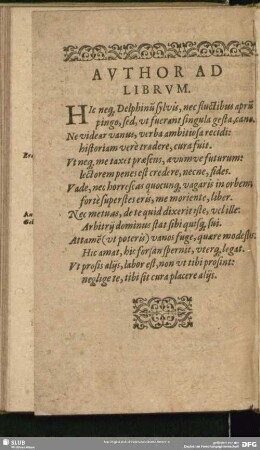 AVTHOR AD
LIBRVM.
HIc neq, Delphinũ sylvis, nec fluctibus aprũ
pingo, sed, vt fuerant singula gesta, cano.
Ne videar vanus, verba ambitiosa recidi:
historiam verè tradere, cura fuit.
Vt neq, me taxet præsens, ævumve futurum:
lectorem penes est credere, necne, fides.
Vade, nec horrescas quocunq, vagaris in orbem:
fortè superstes eris, me moriente, liber.
Nec metuas, de te quid dixerit iste, vel ille:
Arbitrij dominus stat sibi quisq, sui.
Attamē (vt poteris) vanos fuge, quære modestos:
Hic amat, hic forsan spernit, vterq, legat.
Vt prosis alijs, labor est, non vt tibi prosint:
neglige te, tibi sit cura placere alijs.
SLUB
DFG